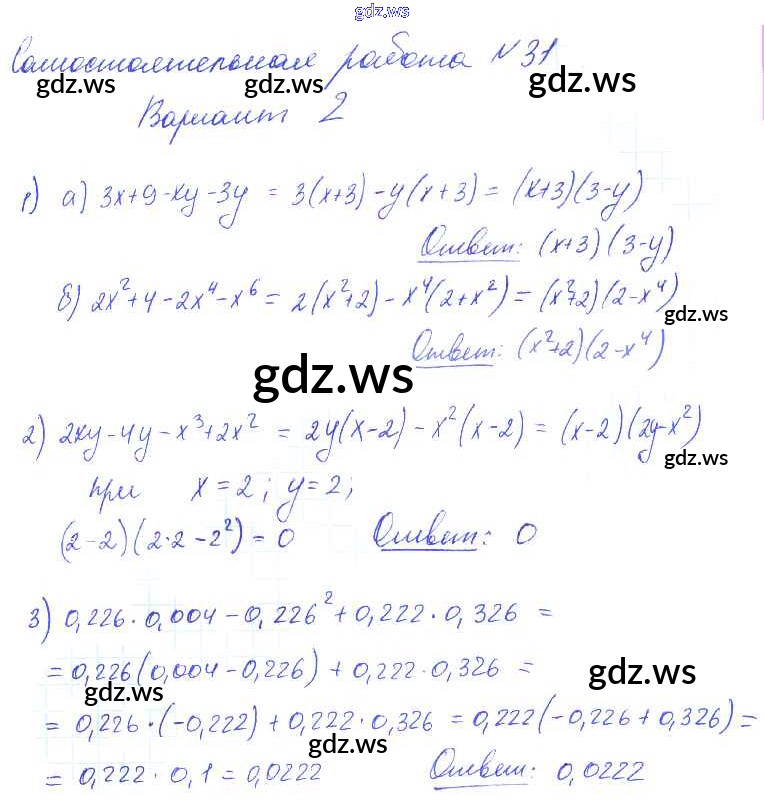 gdz.ws
Самостоятельная работа №31
gdz.ws gdz.ws gdz.ws
Вариант 2
1) а) 3x+9-xy-3y = 3(x+3)-y(x+3) = (x+3)(3-y)
Ответ: (x+3)(3-y)
б) 2x²+4-2x⁴-x⁶ = 2(x²+2)-x⁴(2+x²) = (x²+2)(2-x⁴)
gdz.ws
Ответ: (x²+2)(2-x⁴)
gdz.ws
2) 2xy-4y-x³+2x² = 2y(x-2)-x²(x-2) = (x-2)(2y-x²)
gdz.ws
при x=2; y=2;
(2-2)(2·2-2²)=0 Ответ: 0
3) 0,226·0,004-0,226²+0,222·0,326 =
= 0,226(0,004-0,226)+0,222·0,326 =
gdz.ws gdz.ws
= 0,226·(-0,222)+0,222·0,326 = 0,222(-0,226+0,326) =
gdz.ws
= 0,222·0,1 = 0,0222 Ответ: 0,0222